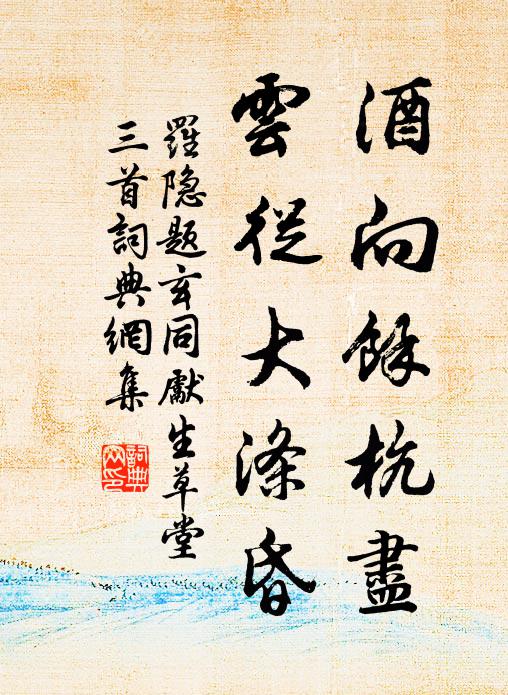 酒向餘杭盡
雲從大滌昏
羅隐題玄同獻生草堂
三首詞典網集
詞典
网印